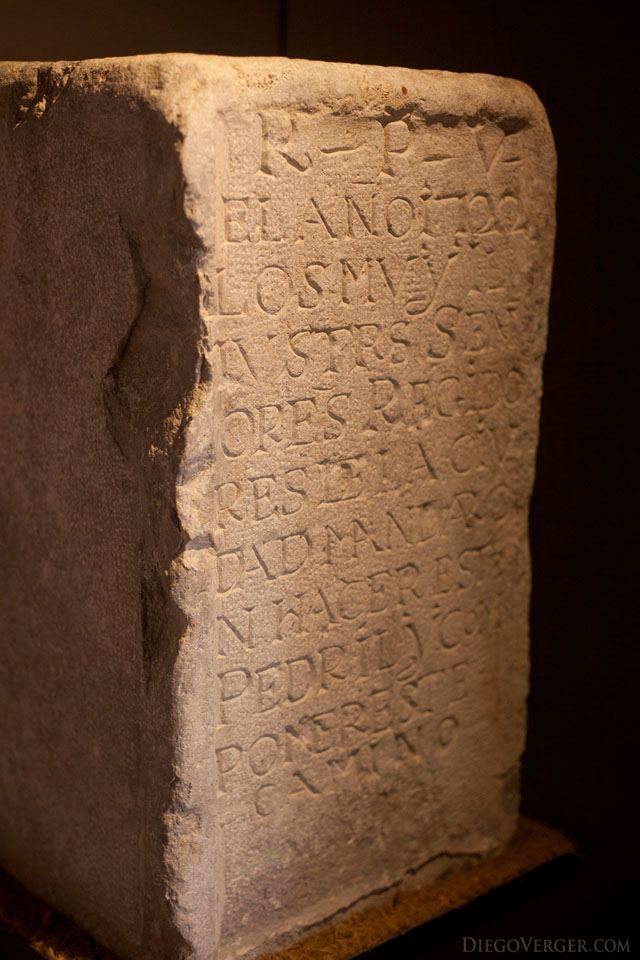 R - P - V -
EL AÑO 1722
LOS MVY
TVSTRS SEN
ORES REGIDO
RES DE LA CIV
DAD MANDARO
N HACER ESTE
PEDRIL Y COM
PONER ESTE
CAMINO
DIEGOVERGER.COM